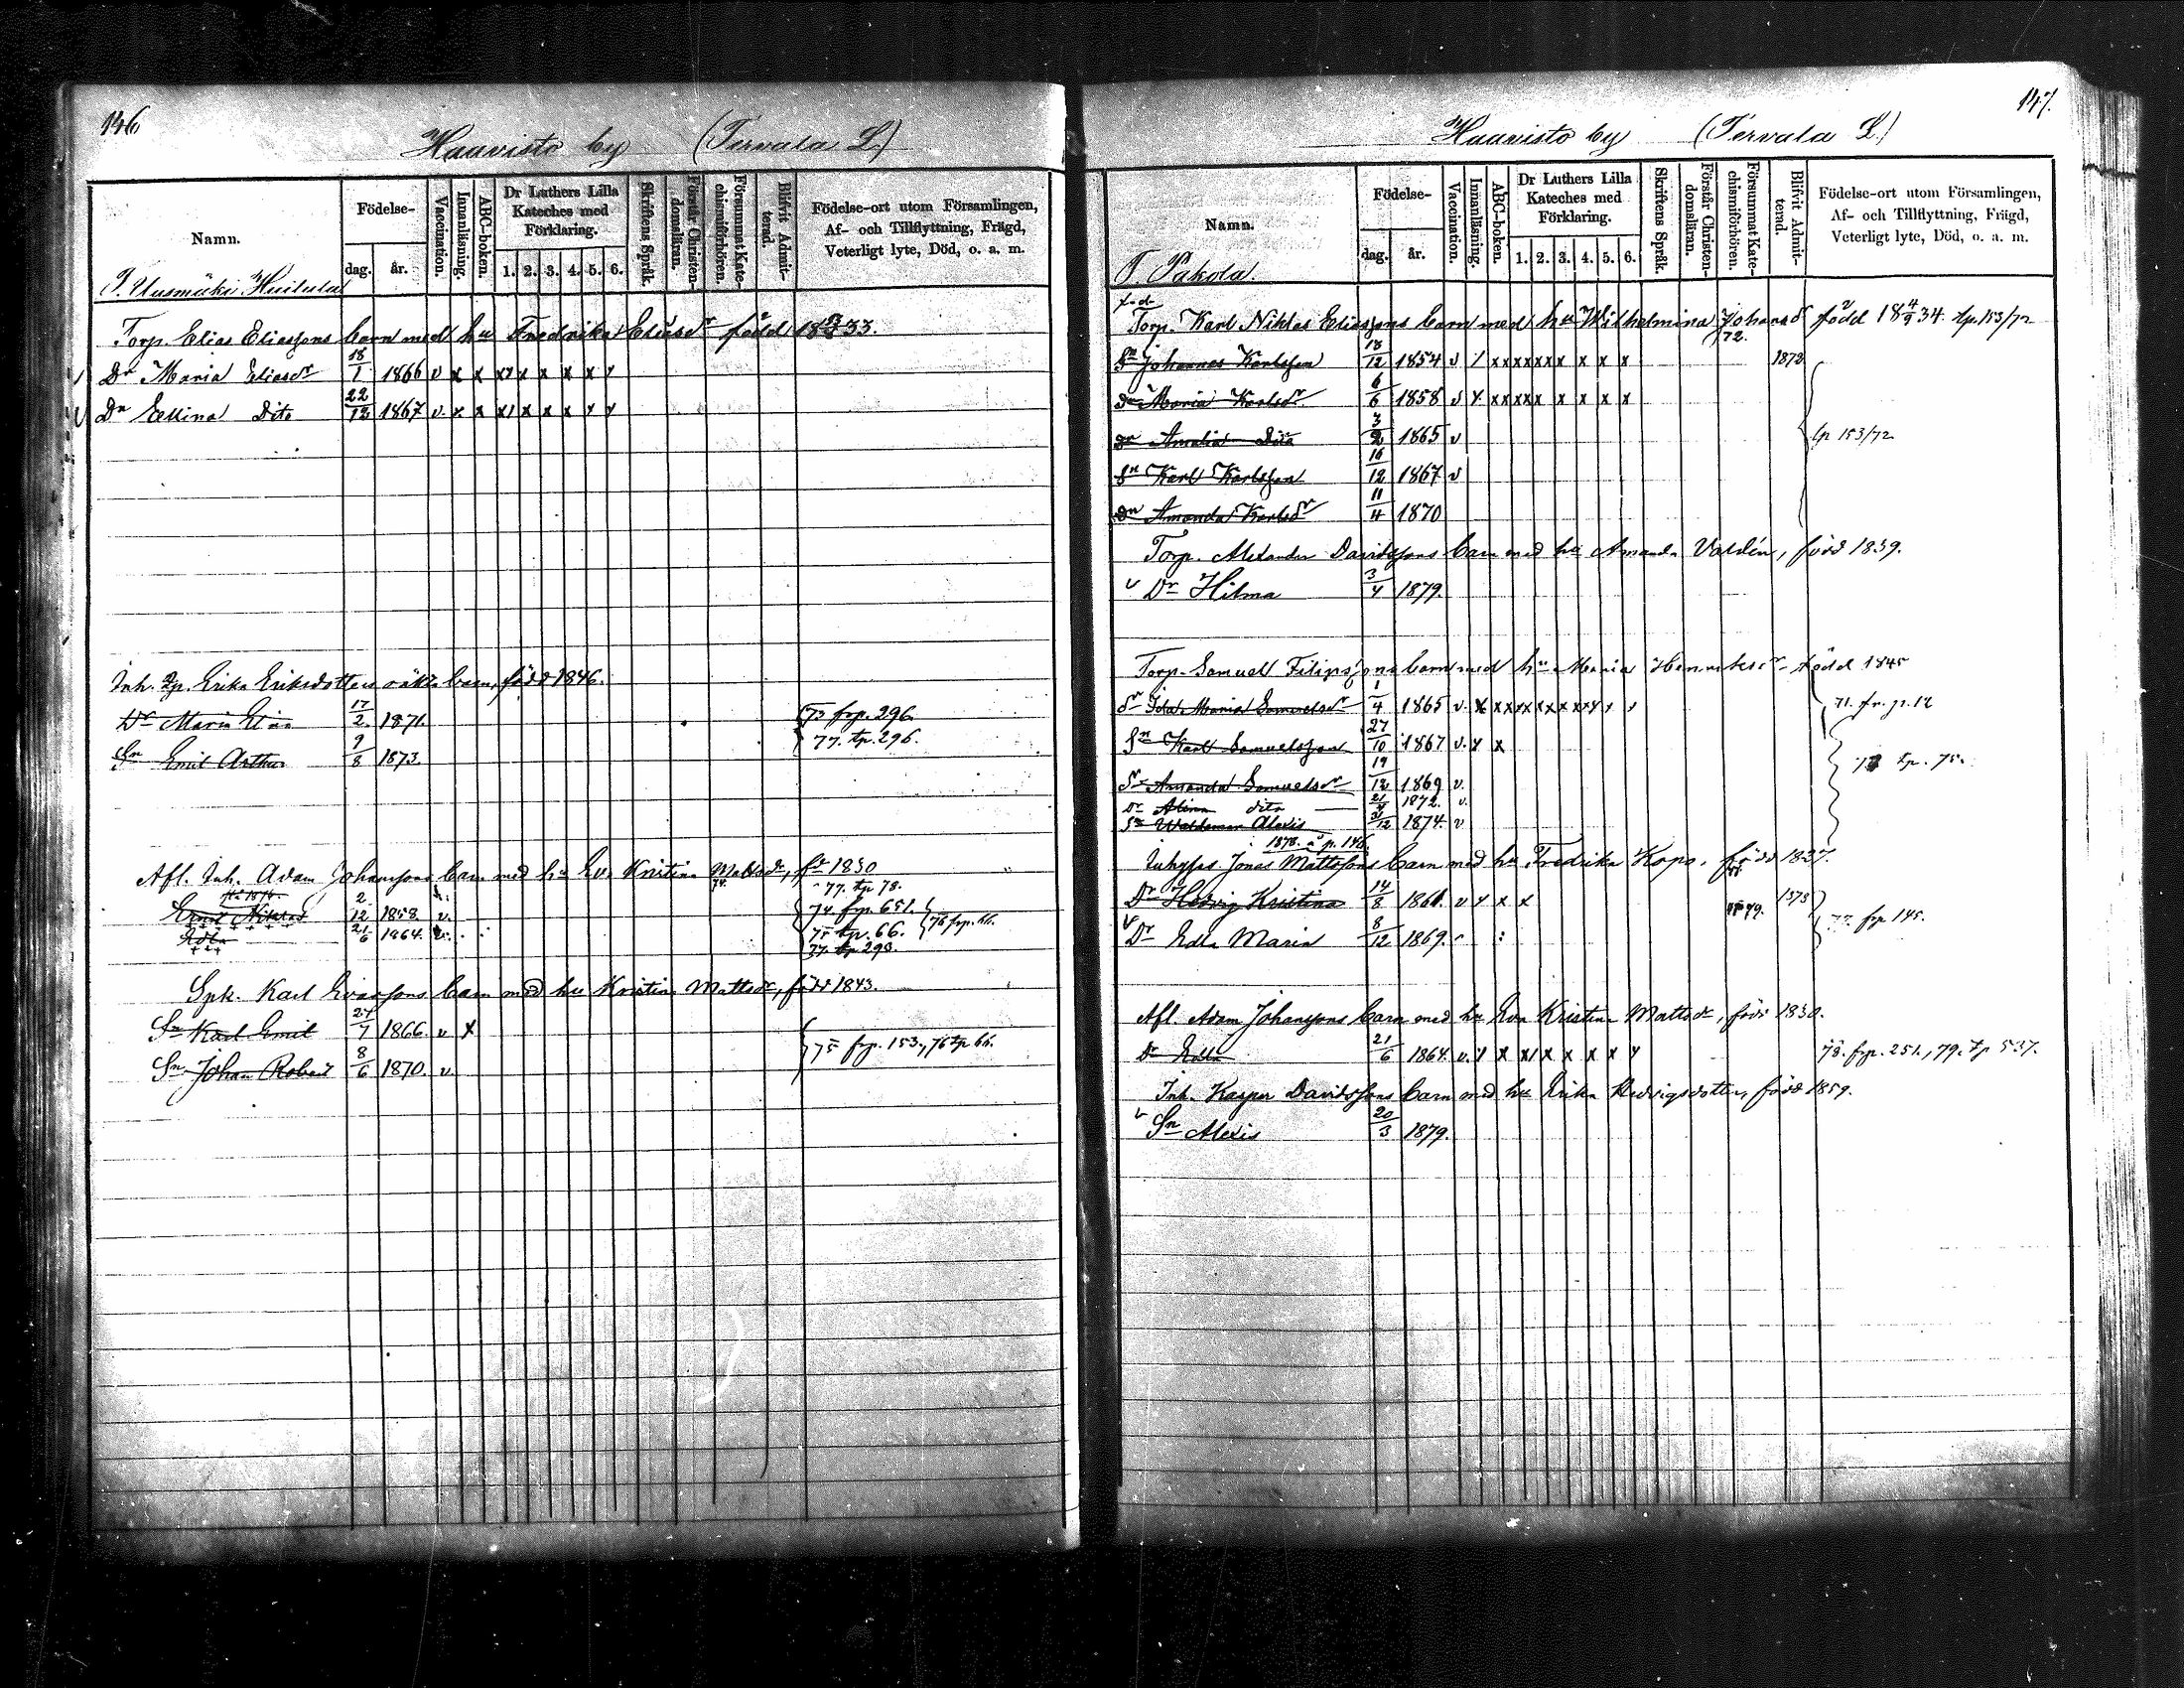 146
Haavisto by (Tervala L.)
Namn.
Födelse-
dag.
år.
Vaccination.
Innanläsning.
ABC-boken.
Dr Luthers Lilla
Kateches med
Förklaring.
1. 2. 3. 4. 5. 6.
Skriftens Språk.
Förstår Christen-
domsläran.
Försummat Kate-
chismiförhören.
Blifvit Admit-
terad.
Födelse-ort utom Församlingen,
Af- och Tillflyttning, Frägd,
Veterligt lyte, Död, o. a. m.
T. Uusmäki Huitula
Torp. Elias Eliassons barn med hu Fredrika Eliasdr född 1833.
Dr Maria Eliasdr 18/1 1866 v x x x x x x x x
Dr Ellina Dito 22/12 1867 v. x x x x x x x x
Inh. Erika Eriksdotters oäkta barn, född 1846.
Dr Maria Elin 17/2 1871. 73 frp. 296.
77. tp. 296.
Sn Emil Arthur 9/8 1873.
Afl. Inh. Adam Johanssons barn med hu Eva Kristina Mattsdr, fd 1830
77. tp 78.
Ernst Nikolas 2/12 1858. v. 74. frp. 651.
Edla 21/6 1864. v. 75 tp. 66. 76 frp. 66.
77. tp 298.
Spk. Karl Evassons barn med hu Kristin Mattsdr, född 1843.
Sn Karl Emil 27/7 1866. v x
75 frp. 153., 76 tp 66.
Sn Johan Robert 8/6 1870. v.
147.
Haavisto by (Tervala L.)
Namn.
Födelse-
dag.
år.
Vaccination.
Innanläsning.
ABC-boken.
Dr Luthers Lilla
Kateches med
Förklaring.
1. 2. 3. 4. 5. 6.
Skriftens Språk.
Förstår Christen-
domsläran.
Försummat Kate-
chismiförhören.
Blifvit Admit-
terad.
Födelse-ort utom Församlingen,
Af- och Tillflyttning, Frägd,
Veterligt lyte, Död, o. a. m.
T. Pakola.
f.d.
Torp. Karl Niklas Eliassons barn med hu Wilhelmina Johansd född 18 4/9 34. tp. 153/72
72.
Sn Johannes Karlsson 18/12 1854 v / x x x x x x x x x x 1872
Dr Maria Karlsdr 6/6 1858 v x x x x x x x x x x
Dr Amalia Dito 3/2 1865 v tp 153/72
Sn Karl Karlsson 16/12 1867 v
Dr Amanda Karlsdr 11/4 1870
Torp. Alexander Davidssons barn med hu Amanda Valdén, född 1839.
v Dr Hilma 3/4 1879.
Torp. Samuel Filipssons barn med hu Maria Henriksdr född 1845
Dr Ida Maria Samuelsdr 1/4 1865 v. x x x x x x x x x 71. fr. p. 12
Sn Karl Samuelsson 27/10 1867 v. x x
tp. 75.
Dr Amanda Samuelsdr 19/12 1869 v.
Dr Alina dito 1872. v.
Sn Waldemar Alexis 31/12 1874. v
1878. å p. 146.
Inhyses Jonas Mattssons barn med hu Fredrika Kops. född 1827.
Dr Hedvig Kristina 14/8 1861. v x x x
77. frp 145.
v Dr Edla Maria 8/12 1869.
Afl. Adam Johanssons barn med hu Eva Kristina Mattsdr, född 1830.
Dr Edla 21/6 1864. v. x x x x x x x x 78. frp. 251., 79. tp 537.
Inh. Kasper Davidssons barn med hu Erika Hedvigsdotter, född 1859.
v Sn Alexis 20/3 1879.